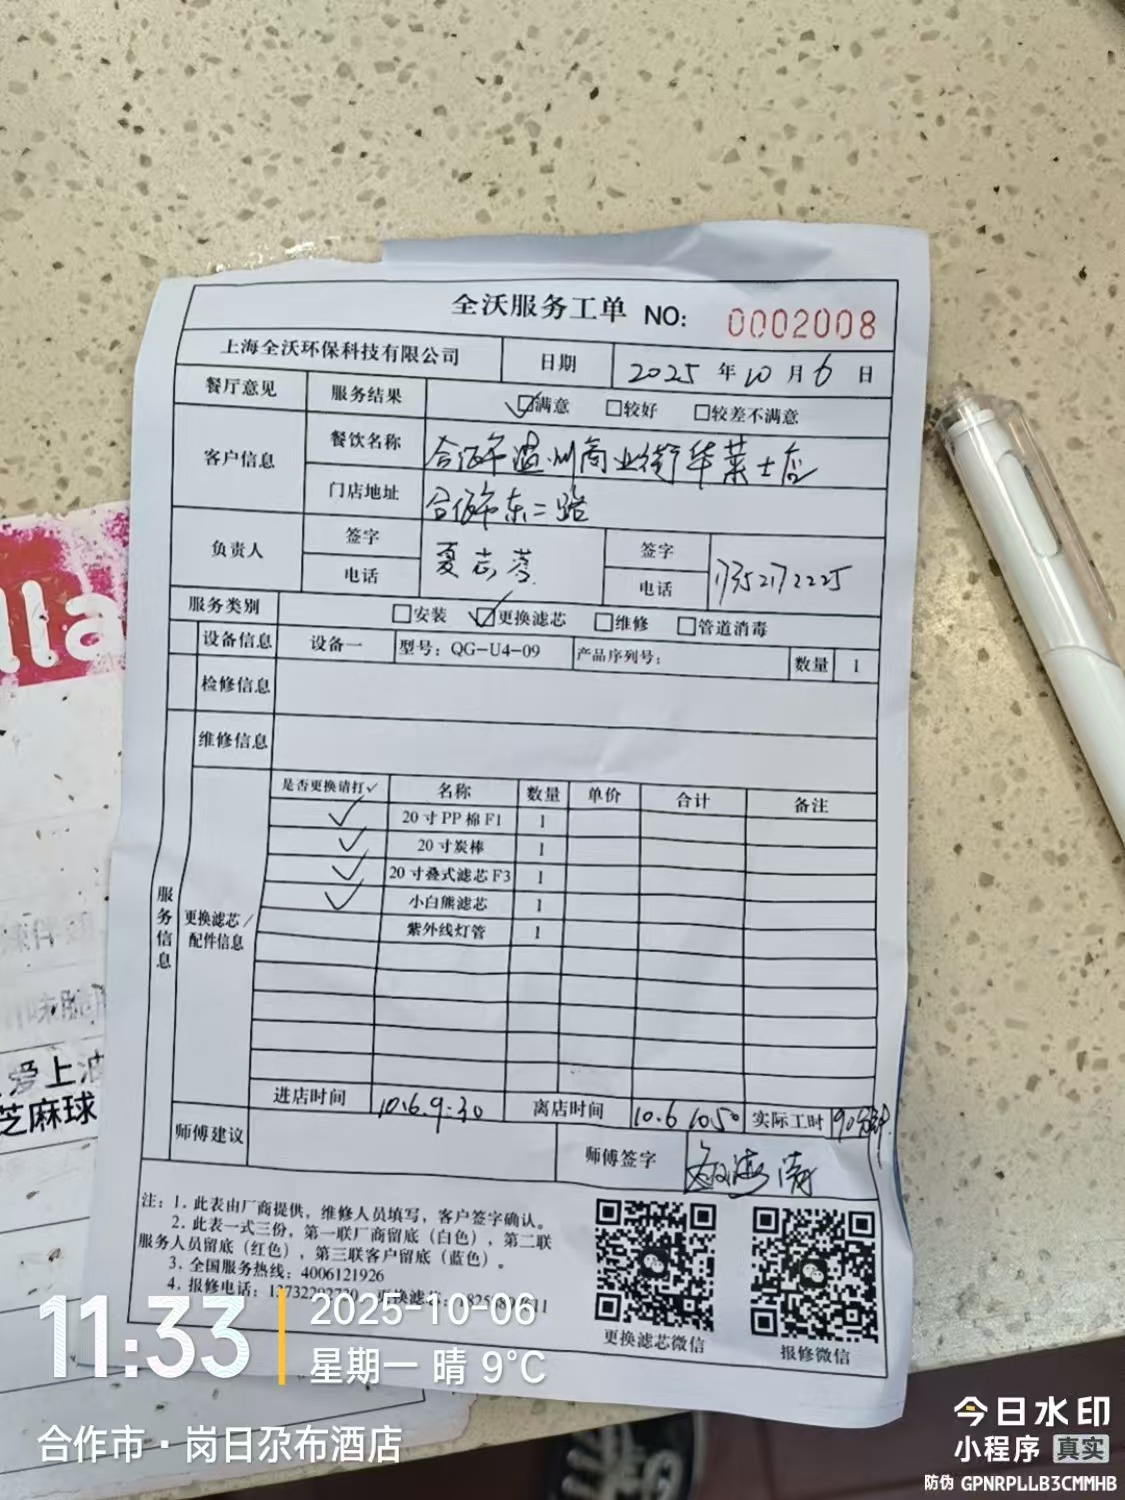 全沃服务工单 NO: 0002008
上海全沃环保科技有限公司 日期 2025年10月6日
餐厅意见 服务结果 ☑满意 □较好 □较差不满意
客户信息 餐饮名称 合作市温州商业街华莱士店
门店地址 合作市东二路
负责人 签字 夏志 签字
电话 电话 17352172225
服务类别 □安装 ☑更换滤芯 □维修 □管道消毒
设备信息 设备一 型号：QG-U4-09 产品序列号： 数量 1
检修信息
维修信息
服务信息
更换滤芯／配件信息
是否更换请打✓ 名称 数量 单价 合计 备注
✓ 20寸PP棉F1 1
✓ 20寸炭棒 1
✓ 20寸叠式滤芯F3 1
✓ 小白熊滤芯 1
紫外线灯管 1
进店时间 10.6.9:30 离店时间 10.6 10:50 实际工时 90分钟
师傅建议 师傅签字
注：1．此表由厂商提供，维修人员填写，客户签字确认。
2．此表一式三份，第一联厂商留底（白色），第二联
服务人员留底（红色），第三联客户留底（蓝色）。
3．全国服务热线：4006121926
4．报修电话： 更换滤芯：
更换滤芯微信 报修微信
lla
爱上
芝麻球
11:33
2025-10-06
星期一 晴 9°C
合作市·岗日尕布酒店
今日水印
小程序 真实
防伪 GPNRPLLB3CMMHB